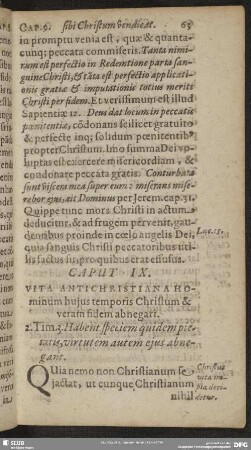 CAP. 9. sibi Christum vendicat. 63
in promptu venia est, quæ & quanta-
cunq; peccata commiseris. Tanta nimi-
rum est perfectio in Redemtione parta san-
guine Christi, & tāta est perfectio applicati-
onis gratiæ & imputationis totius meriti
Christi per fidem. Et verissimum est illud
Sapientiæ 12. Deum dat locum in peccatis
pœnitentiæ, cōdonans scilicet gratuito
& perfecte inq; solidum pœnitentibꝰ
propter Christum. Imo summa Dei vo-
luptas est exercere misericordiam, &
condonare peccata gratis. Conturbata
sunt viscera mea super eum: miserans mise-
rebor ejus, ait Dominus per Jerem. cap. 31.
Quippe tunc mors Christi in actum
deducitur, & ad frugem pervenit, gau-
dentibus proinde in cœlo angelis Dei,
quia sanguis Christi peccatoribus uti-
lis factus sit, pro quibus erat effusus.
Luc. 15.
CAPUT IX.
VITA ANTICHRISTIANA HO-
minum hujus temporis Christum &
veram fidem abnegari.
2. Tim. 3. Habent speciem quidem pie-
tatis, virtutem autem ejus abne-
gant.
QUia nemo non Christianum se
jactat, ut cunque Christianum
nihil
Christus
vita im-
pia
detur.
SLUB
DFG